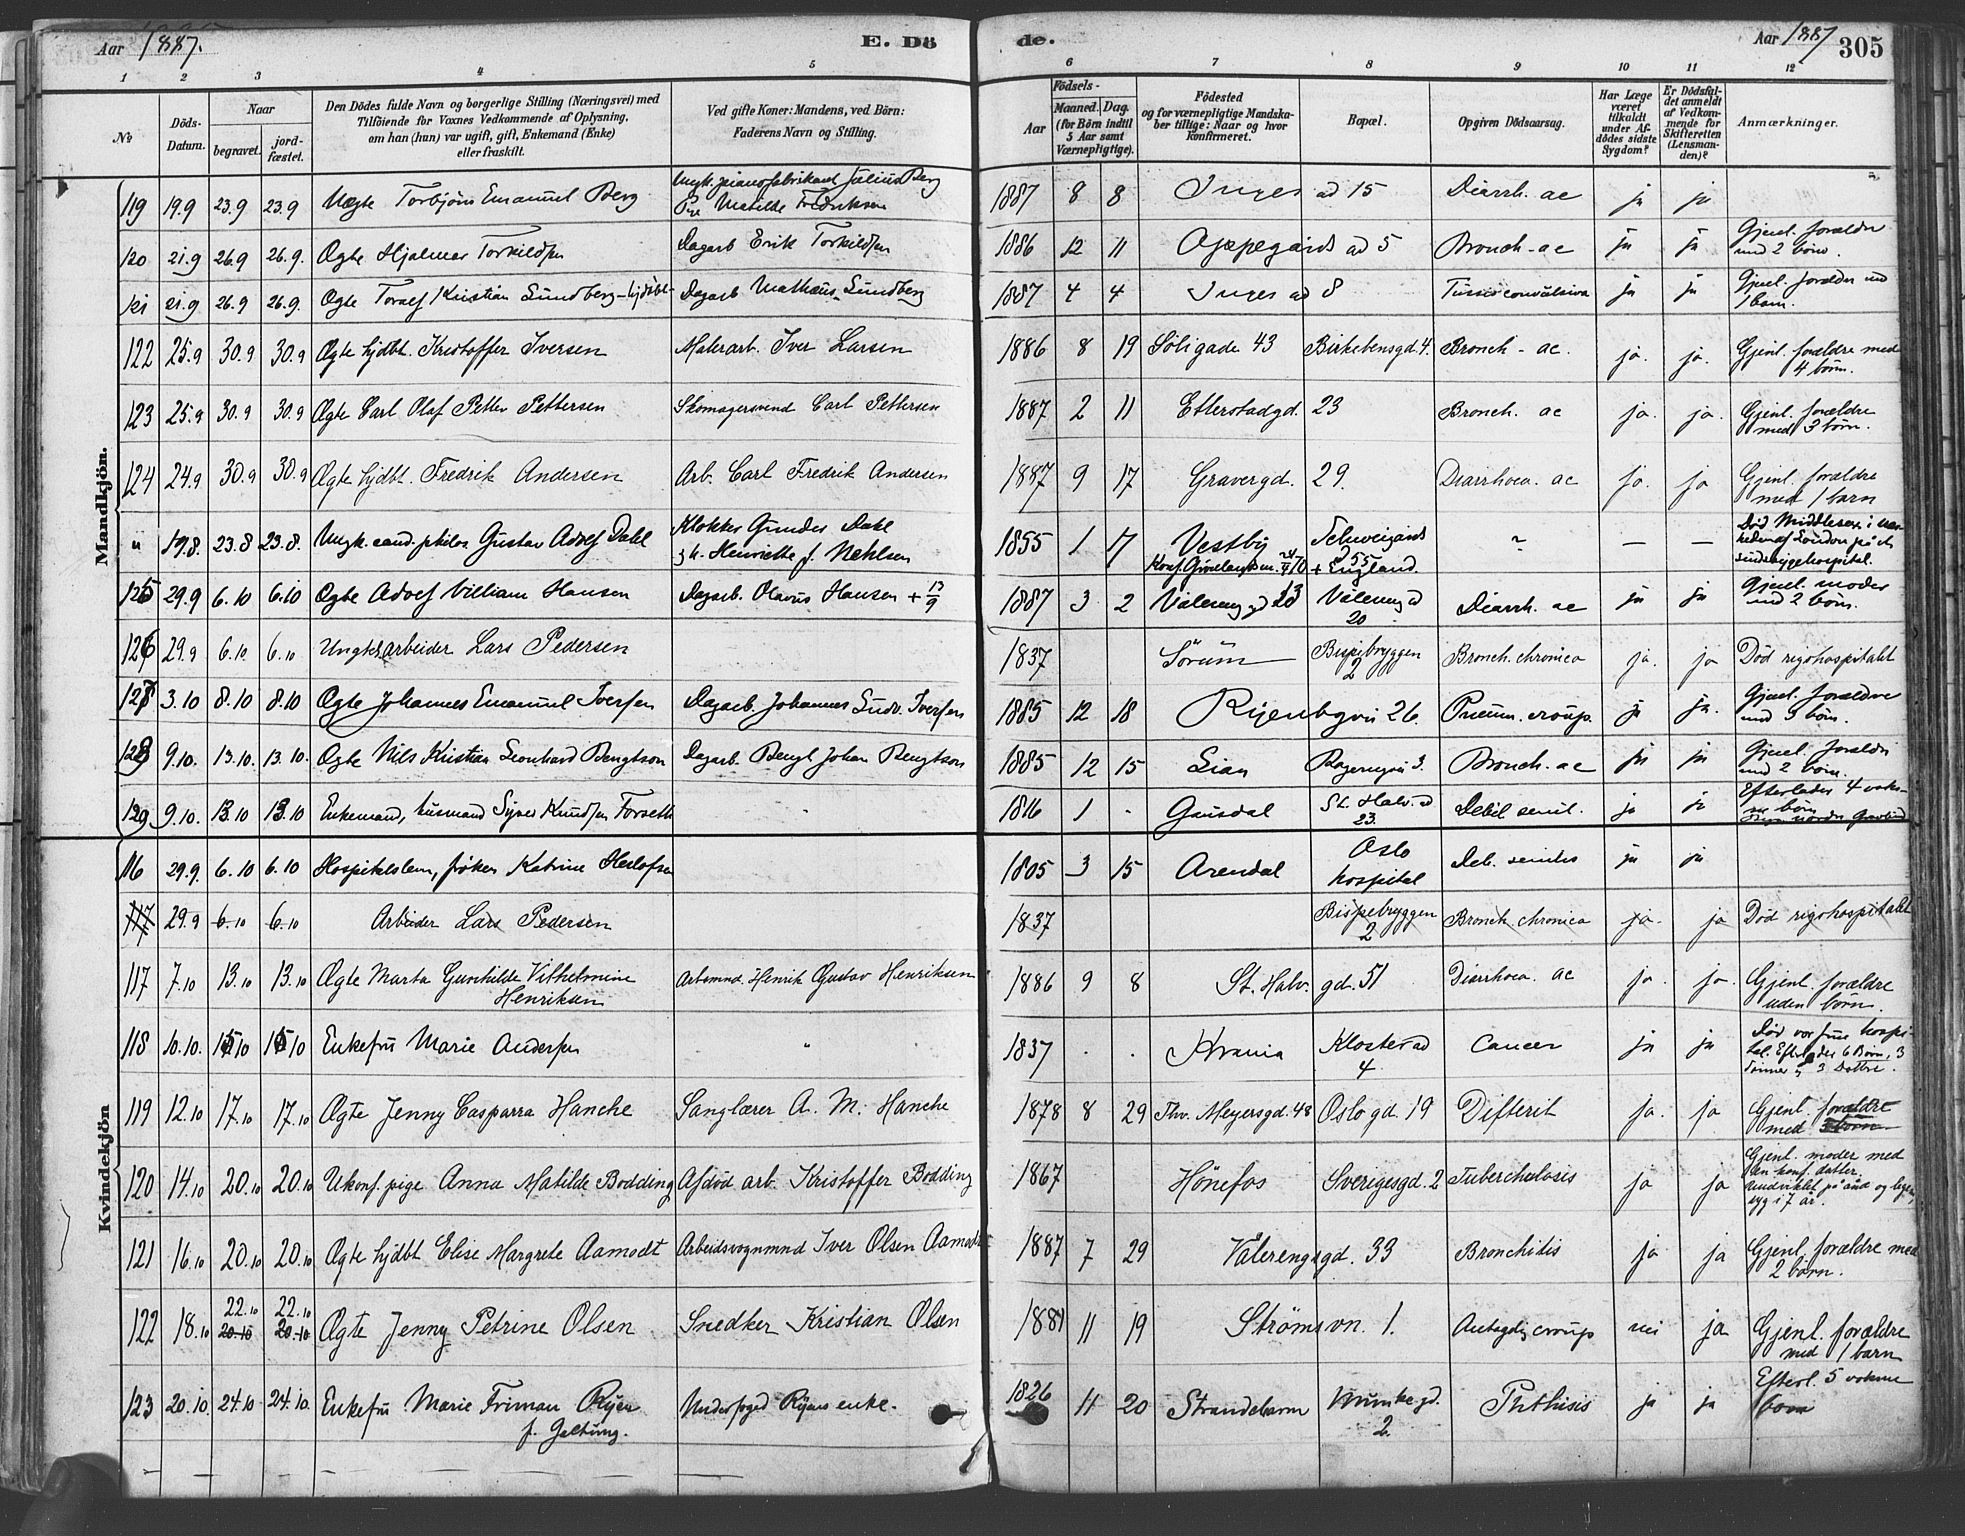 Aar 1887. E. Dö de. Aar 1887 305
1 2 3 4 5 6 7 8 9 10 11 12
№ Döds-Datum. Naar begravet. jordfæstet. Den Dödes fulde Navn og borgerlige Stilling (Næringsvei) med Tilföiende for Voxnes Vedkommende af Oplysning, om han (hun) var ugift, gift, Enkemand (Enke) eller fraskilt. Ved gifte Koner: Mandens, ved Börn: Faderens Navn og Stilling. Födsels- Aar Maaned. Dag. (for Börn indtil 5 Aar samt Værnepligtige). Födested og for værnepligtige Mandskaber tillige: Naar og hvor konfirmeret. Bopæl. Opgiven Dödsaarsag. Har Læge været tilkaldt under Afdödes sidste Sygdom? Er Dödsfaldet anmeldt af Vedkommende for Skifteretten (Lensmanden)? Anmærkninger.
Mandkjön.
119 19.9 23.9 23.9 Uægte Torbjörn Emanuel Berg Ungk. pianofabrikant Julius Berg Pige Matilde Fredriksen 1887 8 8 Inges gd 15 Diarrh. ac ja ja
120 21.9 26.9 26.9. Ægte Hjalmar Torkildsen Dagarb Erik Torkildsen 1886 12 11 Oppegårds gd 5 Bronch. ac ja ja Gjenl. forældre med 2 börn.
121 21.9 26.9 26.9. Ægte Toralf Kristian Sundberg - hjdöbt Dagarb Mathæus Sundberg 1887 4 4 Inges gd 8 Tussis convulsiva ja ja Gjenl. forældre med 1 barn.
122 25.9 30.9 30.9 Ægte hjdbt. Kristoffer Iversen Malerarb. Iver Larsen 1886 8 19 Söligade 43 Birkebensgd. 4. Bronch - ac. ja. ja. Gjenl. forældre med 4 börn.
123 25.9 30.9 30.9 Ægte Carl Olaf Petter Pettersen Skomagersvend Carl Pettersen 1887 2 11 Etterstadgd. 23 Bronch. ac ja. ja. Gjenl. forældre med 3 börn.
124 24.9 30.9 30.9 Ægte hjdbt. Fredrik Andersen Arb. Carl Fredrik Andersen 1887 9 17 Gravergd. 29. Diarrhoea. ac ja. ja Gjenl. forældre med 1 barn
" 19.8. 23.8 23.8. Ungk. cand. philos Gustav Adolf Dahl Klokker Gunder Dahl g h. Henriette f. Nehlsen 1855 1 7 Vestby Schweigårds 55 + England. ~ — — Död Middlesex i nærheden af London på et sindssygehospital.
125 29.9 6.10 6.10 Ægte Adolf Villiam Hansen Dagarb. Olavus Hansen + 17/9 1887 3 2 Våleren gd 13 Våleren gd 20 Diarrh. ac ja ja gjenl. moder med 2 börn.
126 29.9 6.10. 6.10 Ungk. arbeider Lars Pedersen 1837 Sörum Bispebryggen 2 Bronch. chronica ja. ja Död rigshospitalet
127 3.10 8.10 8.10 Ægte Johannes Emanuel Iversen Dagarb. Johannes Ludv. Iversen 1885 12 18 Ryenbgvn 26. Pneum. croup. ja ja. Gjenl. forældre med 3 börn.
128 9.10. 13.10. 13.10. Ægte Nils Kristian Leonhard Bengtson Dagarb. Bengt Johan Bengtson 1885 12 15 Lian 3. Bronch. ac ja ja Gjenl. forældre med 2 börn.
129 9.10. 13.10 13.10 Enkemand, husmand Syver Knudsen Forseth " 1816 1 - Gausdal St. Halv. gd 23. Debil senil. ja ja Efterlader 4 voksne börn
Kvindekjön
116 29.9. 6.10 6.10 Hospitalslem, fröken Katrine Herlofsen 1805 3 15 Arendal Oslo hospital Deb. senilis ja ja
117 29.9 6.10 6.10 Arbeider Lars Pedersen 1837 Bispebryggen 2 Bronch. chronica ja. ja Död rigshospitalet
117 7.10 13.10 13.10 Ægte Marta Gunhilde Vilhelmine Henriksen Arbmnd. Henrik Gustav Henriksen 1886 9 8 St. Halv. gd. 51 Diarrhoea. ac ja. ja. Gjenl. forældre uden börn
118 10.10. 15.10 15.10 Enkefru Marie Andersen " 1837 . . Krania Klostergd 4. Cancer ja ja Död vor frue hospital. Efterlader 6 Börn, 3 Sönner & 3 Döttre.
119 12.10 17.10 17.10 Ægte Jenny Casparra Hanche Sanglærer A. M. Hanche 1878 8 29 Thv. Meyersgd. 48 Oslo gd. 19 Difterit ja. ja Gjenl. forældre med börn
120 14.10 20.10 20.10 Ukonf. pige Anna Matilde Bodding Afdöd arb. Kristoffer Bodding 1867 Hönefos Sverigesgd. 2 Tuberchulosis ja ja Gjenl. moder med en konf. datter. Uudviklet på ånd og legem, syg i 7 år.
121 16.10 20.10 20.10 Ægte hjdbt Elise Margrete Aamodt Arbeidsvognmnd Iver Olsen Aamodt 1887 7 29 Valerengsgd. 33 Bronchitis ja ja Gjenl. forældre med 2 börn.
122 18.10 22.10 20.10 22.10 20.10 Ægte Jenny Petrine Olsen Snedker Kristian Olsen 1881 11 19 Strömsvn. 1. Antagelig croup nei ja Gjenl. forældre med 1 barn
123 20.10. 24.10 24.10. Enkefru Marie Friman Ryen f. Geltung. Underfoged Ryens enke. 1826 11 20 Strandebarm Munkegd. 2. Phthisis ja ja Efterl. 5 voksne börn